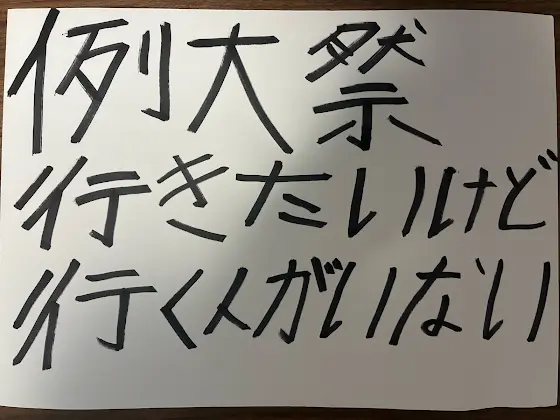 例大祭
行きたいけど
行く人がいない